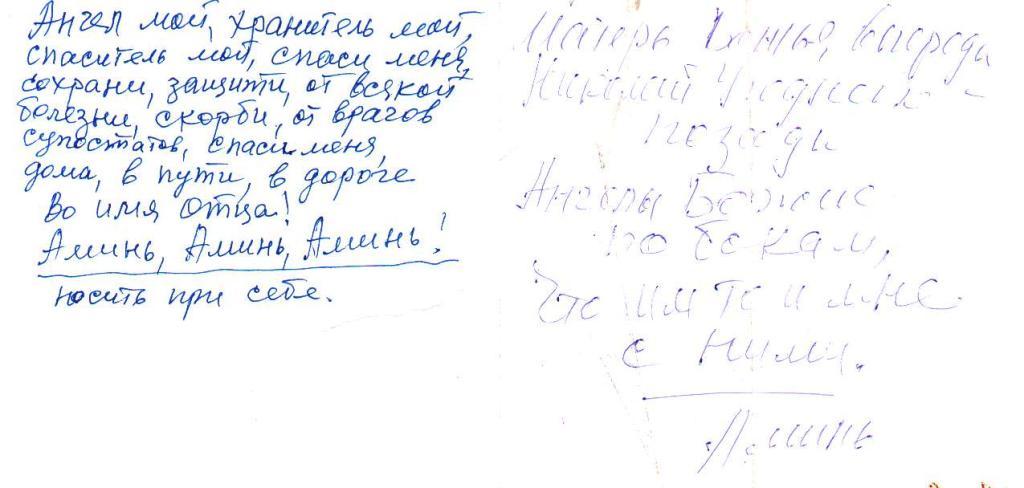 Ангел мой, хранитель мой,
спаситель мой, спаси меня,
сохрани, защити, от всякой
болезни, скорби, от врагов
супостатов, спаси меня,
дома, в пути, в дороге
Во имя Отца!
Аминь, Аминь, Аминь!
носить при себе.
Матерь Божья, впереди
Николай Угодник -
позади
Ангелы Божие
по бокам,
Что им то и мне
с ними.
Аминь